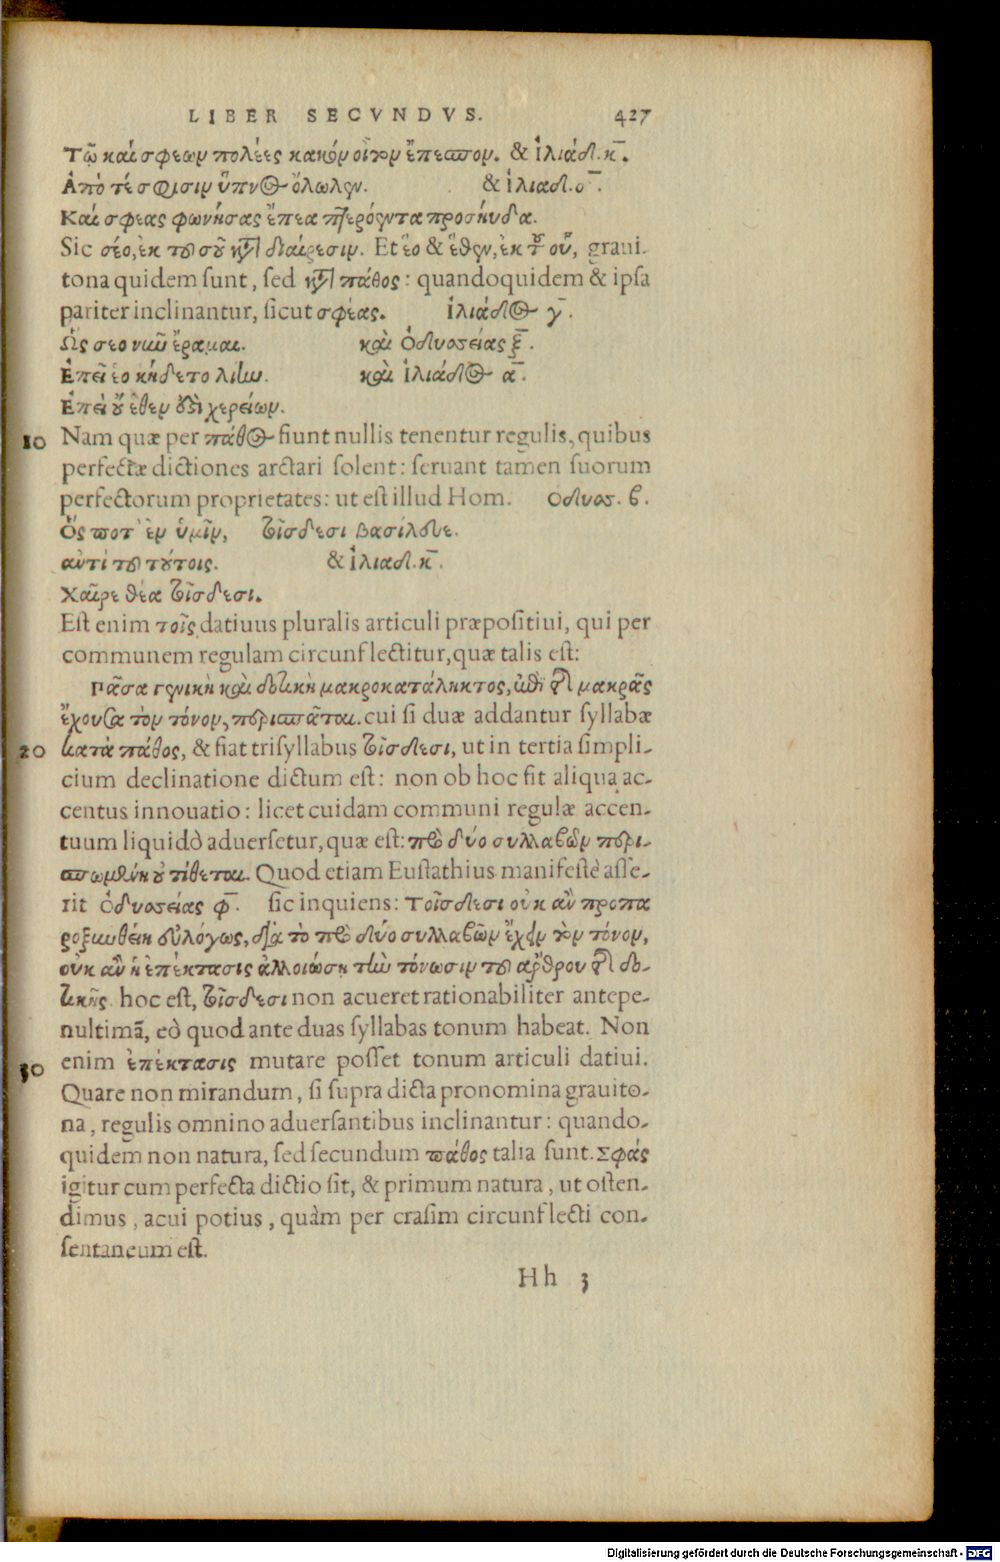 LIBER SECVNDVS. 427
Τῷ καί σφεων πολέες κακὸν οἶτον ἔπεσπον. & ἰλιάδ. κ̄.
Ἀπὸ τέ σφισιν ὕπνος ὄλωλεν. & ἰλιαδ. ο̄.
Καί σφεας φωνήσας ἔπεα πτερόεντα προσηύδα.
Sic σέο, ἐκ τοῦ σοῦ κατὰ διαίρεσιν. Et ἕο & ἕθεν, ἐκ τοῦ οὗ, graui-
tona quidem sunt, sed κατὰ πάθος: quandoquidem & ipsa
pariter inclinantur, sicut σφέας. ἰλιάδος γ̄.
Ὥς σεο νῦν ἔραμαι. καὶ ὀδυσσείας ξ̄.
Ἐπεί ἑο κήδετο λίην. καὶ ἰλιάδος ᾱ.
Ἐπεὶ οὔ ἑθεν ἐστὶ χερείων.
10 Nam quæ per πάθος fiunt nullis tenentur regulis, quibus
perfectæ dictiones arctari solent: seruant tamen suorum
perfectorum proprietates: ut est illud Hom. Οδυσ. β.
Ὅς ποτ' ἐν ὑμῖν, τοῖσδεσι βασίλευε.
αὐτὶ τοῦ τούτοις. & ἰλιαδ. κ̄.
Χαῖρε θέα τοῖσδεσι.
Est enim τοῖς datiuus pluralis articuli præpositiui, qui per
communem regulam circunflectitur, quæ talis est:
Πᾶσα γενικὴ καὶ δοτικὴ μακροκατάληκτος, ἐπὶ τέλους μακρᾶς
ἔχουσα τὸν τόνον, περισπᾶται. cui si duæ addantur syllabæ
20 κατὰ πάθος, & fiat trisyllabus τοῖσδεσι, ut in tertia simpli-
cium declinatione dictum est: non ob hoc fit aliqua ac-
centus innouatio: licet cuidam communi regulæ accen-
tuum liquidò aduersetur, quæ est: πρὸ δύο συλλαβῶν περι-
σπωμένη οὐ τίθεται. Quod etiam Eustathius manifestè asse-
rit ὀδυσσείας φ̄. sic inquiens: Τοῖσδεσι οὐκ ἂν προπα
ροξυνθείη εὐλόγως, διὰ τὸ πρὸ δύο συλλαβῶν ἔχειν τὸν τόνον,
οὐκ ἂν ἡ ἐπέκτασις ἀλλοιώση τὴν τόνωσιν τοῦ ἄρθρου τῆς δο-
τικῆς. hoc est, τοῖσδεσι non acueret rationabiliter antepe-
nultimã, eò quod ante duas syllabas tonum habeat. Non
30 enim ἐπέκτασις mutare posset tonum articuli datiui.
Quare non mirandum, si supra dicta pronomina grauito-
na, regulis omnino aduersantibus inclinantur: quando-
quidem non natura, sed secundum πάθος talia sunt. Σφάς
igitur cum perfecta dictio sit, & primum natura, ut osten-
dimus, acui potius, quàm per crasim circunflecti con-
sentaneum est.
Hh 3
Digitalisierung gefördert durch die Deutsche Forschungsgemeinschaft - DFG